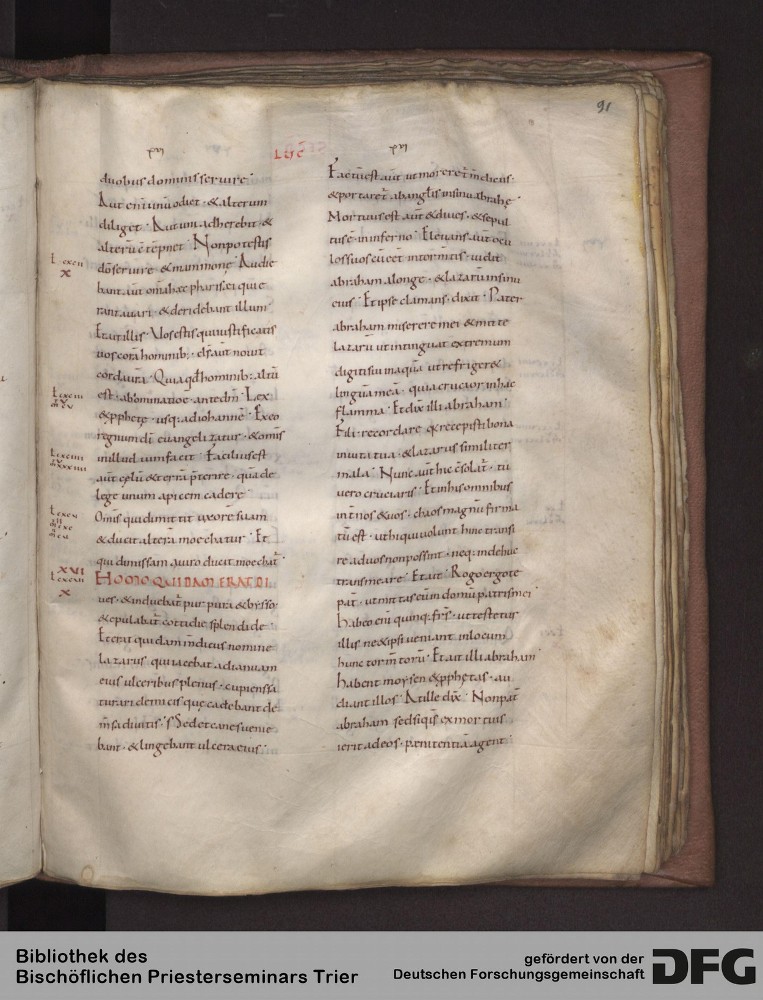 91
xvi
LUC
xvi
duobus dominis servire ·
Aut eni unu odiet · & alterum
diliget · Aut uni adherebit · &
alteru c̄tēpnet · Non potestis
dō servire · & mammone · Audie
bant aut oma haec pharisei qui e
rant avari · & deridebant illum ·
Et ait illis · Vos estis qui iustificatis
vos corā hominib; · ds̄ aut novit
corda vr̄a · Quia qd̄ hominib; altū
est · abominatio ē · ante dm̄ · Lex
& p̄phete · usq; ad iohannē · Ex eo
regnum dī euangelizatur · & omīs
in illud uim facit · Facilius est
aut cęlū & terrā p̄terire · quā de
lege unum apicem cadere ·
Omīs qui dimittit uxorē suam
& ducit alterā moechatur · Et
qui dimissam a viro ducit moechat̄ ·
HOMO QUIDAM ERAT DI
ves · & induebat̄ purpura & bysso ·
& epulabat̄ cottidie splendide ·
Et erat quidam mendicus nomine
lazarus · qui iacebat ad ianuam
eius ulceribus plenus · cupiens sa
turari de micis que cadebant de
mensa divitis · Sed et canes venie
bant · & lingebant ulcera eius ·
Factū est aut̄ ut morer&̄ mendicus ·
& portaret̄ ab anglis in sinu abrahę ·
Mortuus est aut̄ & dives · & sepul
tus ē in inferno · Elevans aut̄ ocu
los suos cū eēt in tormtīs · vidit
abraham a longe · & lazarū in sinu
eius · Et ipse clamans · dixit · Pater
abraham miserere mei & mitte
lazarū ut intinguat extremum
digiti sui in aquā · ut refriger&
linguā meā · quia crucior in hac
flamma · Et dix̄ illi abraham ·
Fili · recordare q̄ recepisti bona
in vita tua · & lazarus similiter
mala · Nunc aut̄ hic c̄solat̄ · tu
vero cruciaris · Et in his omnibus
int̄ nos & vos · chaos magnū firma
tū est · ut hi qui volunt hinc transi
re ad vos non possint · neq; inde huc
transmeare · Et ait · Rogo ergo te
pat̄ · ut mittas eum in domū patris mei ·
habeo enī quinq; frs̄ · ut testetur
illis ne & ipsi veniant in locum
hunc tormtorū · Et ait illi abraham ·
habent moysen & p̄phetas · au
diant illos · At ille dix̄ · Non pat̄
abraham sed si quis ex mortuis
ierit ad eos · pęnitentiā agent ·
Bibliothek des
Bischöflichen Priesterseminars Trier
gefördert von der
Deutschen Forschungsgemeinschaft
DFG